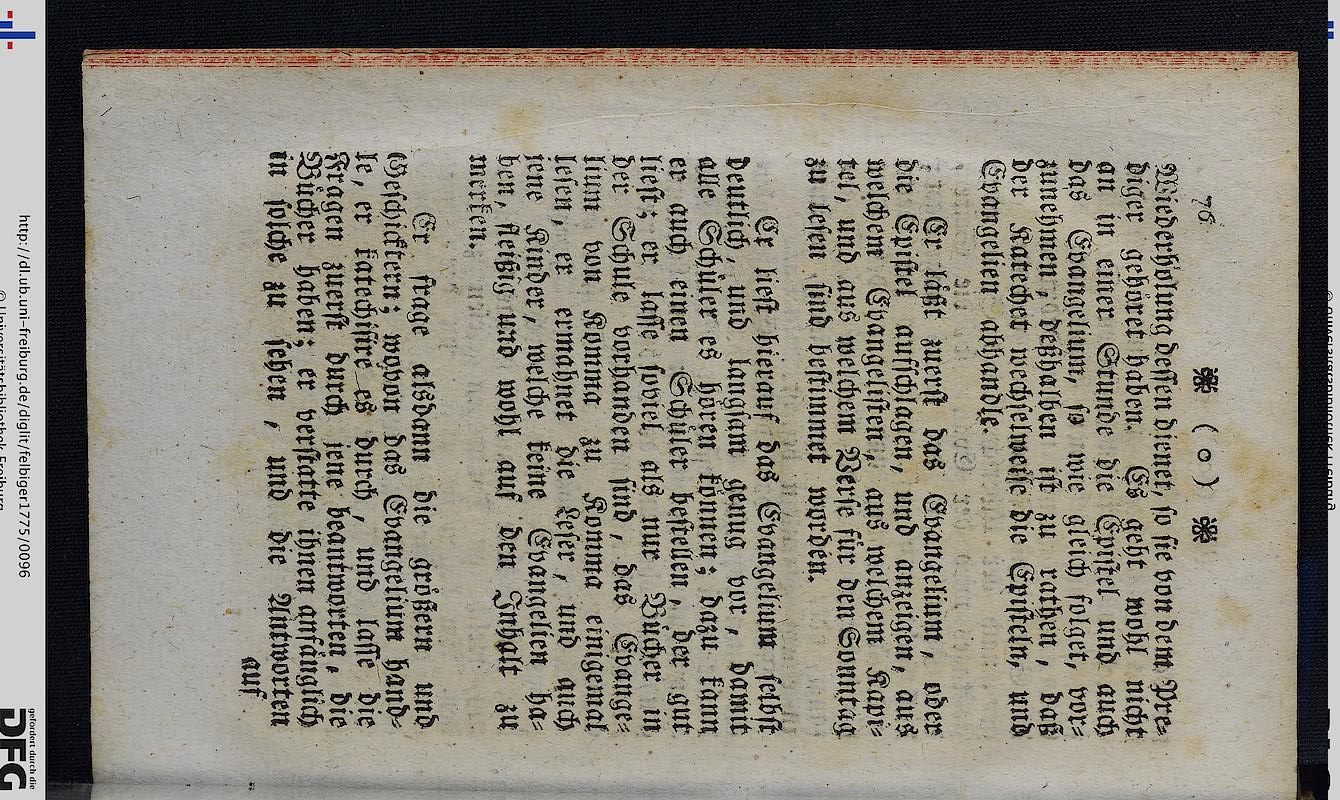 76 ❋ ( o ) ❋
Wiederholung dessen dienet, so sie von dem Pre-
diger gehöret haben. Es geht wohl nicht
an in einer Stunde die Epistel und auch
das Evangelium, so wie gleich folget, vor-
zunehmen, deßhalben ist zu rathen, daß
der Katechet wechselweise die Episteln, und
Evangelien abhandle.
Er läßt zuerst das Evangelium, oder
die Epistel aufschlagen, und anzeigen, aus
welchem Evangelisten, aus welchem Kapi-
tel, und aus welchem Verse für den Sonntag
zu lesen sind bestimmet worden.
Er liest hierauf das Evangelium selbst
deutlich, und langsam genug vor, damit
alle Schüler es hören können; dazu kann
er auch einen Schüler bestellen, der gut
liest; er lasse soviel als nur Bücher in
der Schule vorhanden sind, das Evange-
lium von Komma zu Komma einigemal
lesen, er ermahnet die Leser, und auch
jene Kinder, welche keine Evangelien ha-
ben, fleißig und wohl auf den Inhalt zu
merken.
Er frage alsdann die größern und
Geschicktern; wovon das Evangelium hand-
le, er katechisire es durch, und lasse die
Fragen zuerst durch jene beantworten, die
Bücher haben; er verstatte ihnen anfänglich
in solche zu sehen, und die Antworten
auf
http://dl.ub.uni-freiburg.de/diglit/felbiger1775/0096
© Universitätsbibliothek Freiburg
gefördert durch die
DFG